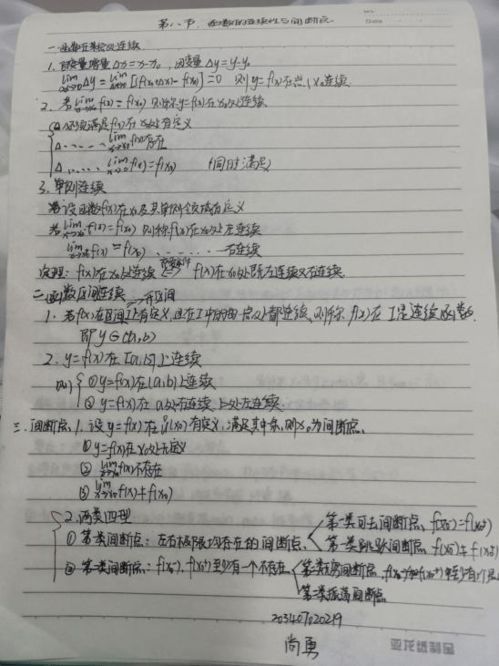 第八节 函数的连续性与间断点
一.函数在某处连续
1. 自变量增量 Δx=x-x₀, 因变量 Δy=y-y₀
lim Δx→0 Δy = lim Δx→0 [f(x₀+Δx)-f(x₀)]=0 则y=f(x)在点x₀连续
2. 若 lim x→x₀ f(x)=f(x₀) 则称y=f(x)在x₀处连续.
△必须满足f(x)在x₀处有定义
△...... lim x→x₀ f(x)存在
△...... lim x→x₀ f(x)=f(x₀) (同时满足)
3. 单侧连续
设函数f(x)在x₀及其单侧领域有定义
若 lim f(x)=f(x₀) 则称f(x)在x₀处左连续
lim f(x)=f(x₀) ...... 右连续
定理: f(x)在x₀处连续 ⟺ f(x)在x₀处既左连续又右连续.
二.函数区间连续 开区间
1. 若f(x)在区间I上有定义,且在I中的每一点处都连续,则称 f(x)在I是连续函数.
即 y∈C(a,b)
2. y=f(x)在[a,b]上连续
则 { ①y=f(x)在(a,b)上连续
②y=f(x)在a处右连续 b处左连续
三.间断点. 1. 设y=f(x)在ů(x₀)有定义,满足其中一条,则x₀为间断点.
①y=f(x)在x₀处无定义
② lim x→x₀ f(x)不存在
③ lim x→x₀ f(x)≠f(x₀)
2.两类四型
①第一类间断点: 左右极限均存在的间断点. 第一类可去间断点. f(x₀⁻)=f(x₀⁺)
第一类跳跃间断点. f(x₀⁻)≠f(x₀⁺)
②第二类间断点: f(x₀⁻), f(x₀⁺)至少有一个不存在 第二类无穷间断点. f(x₀⁻)和f(x₀⁺)至少有一个是
第二类振荡间断点
尚勇
亚龙纸制品